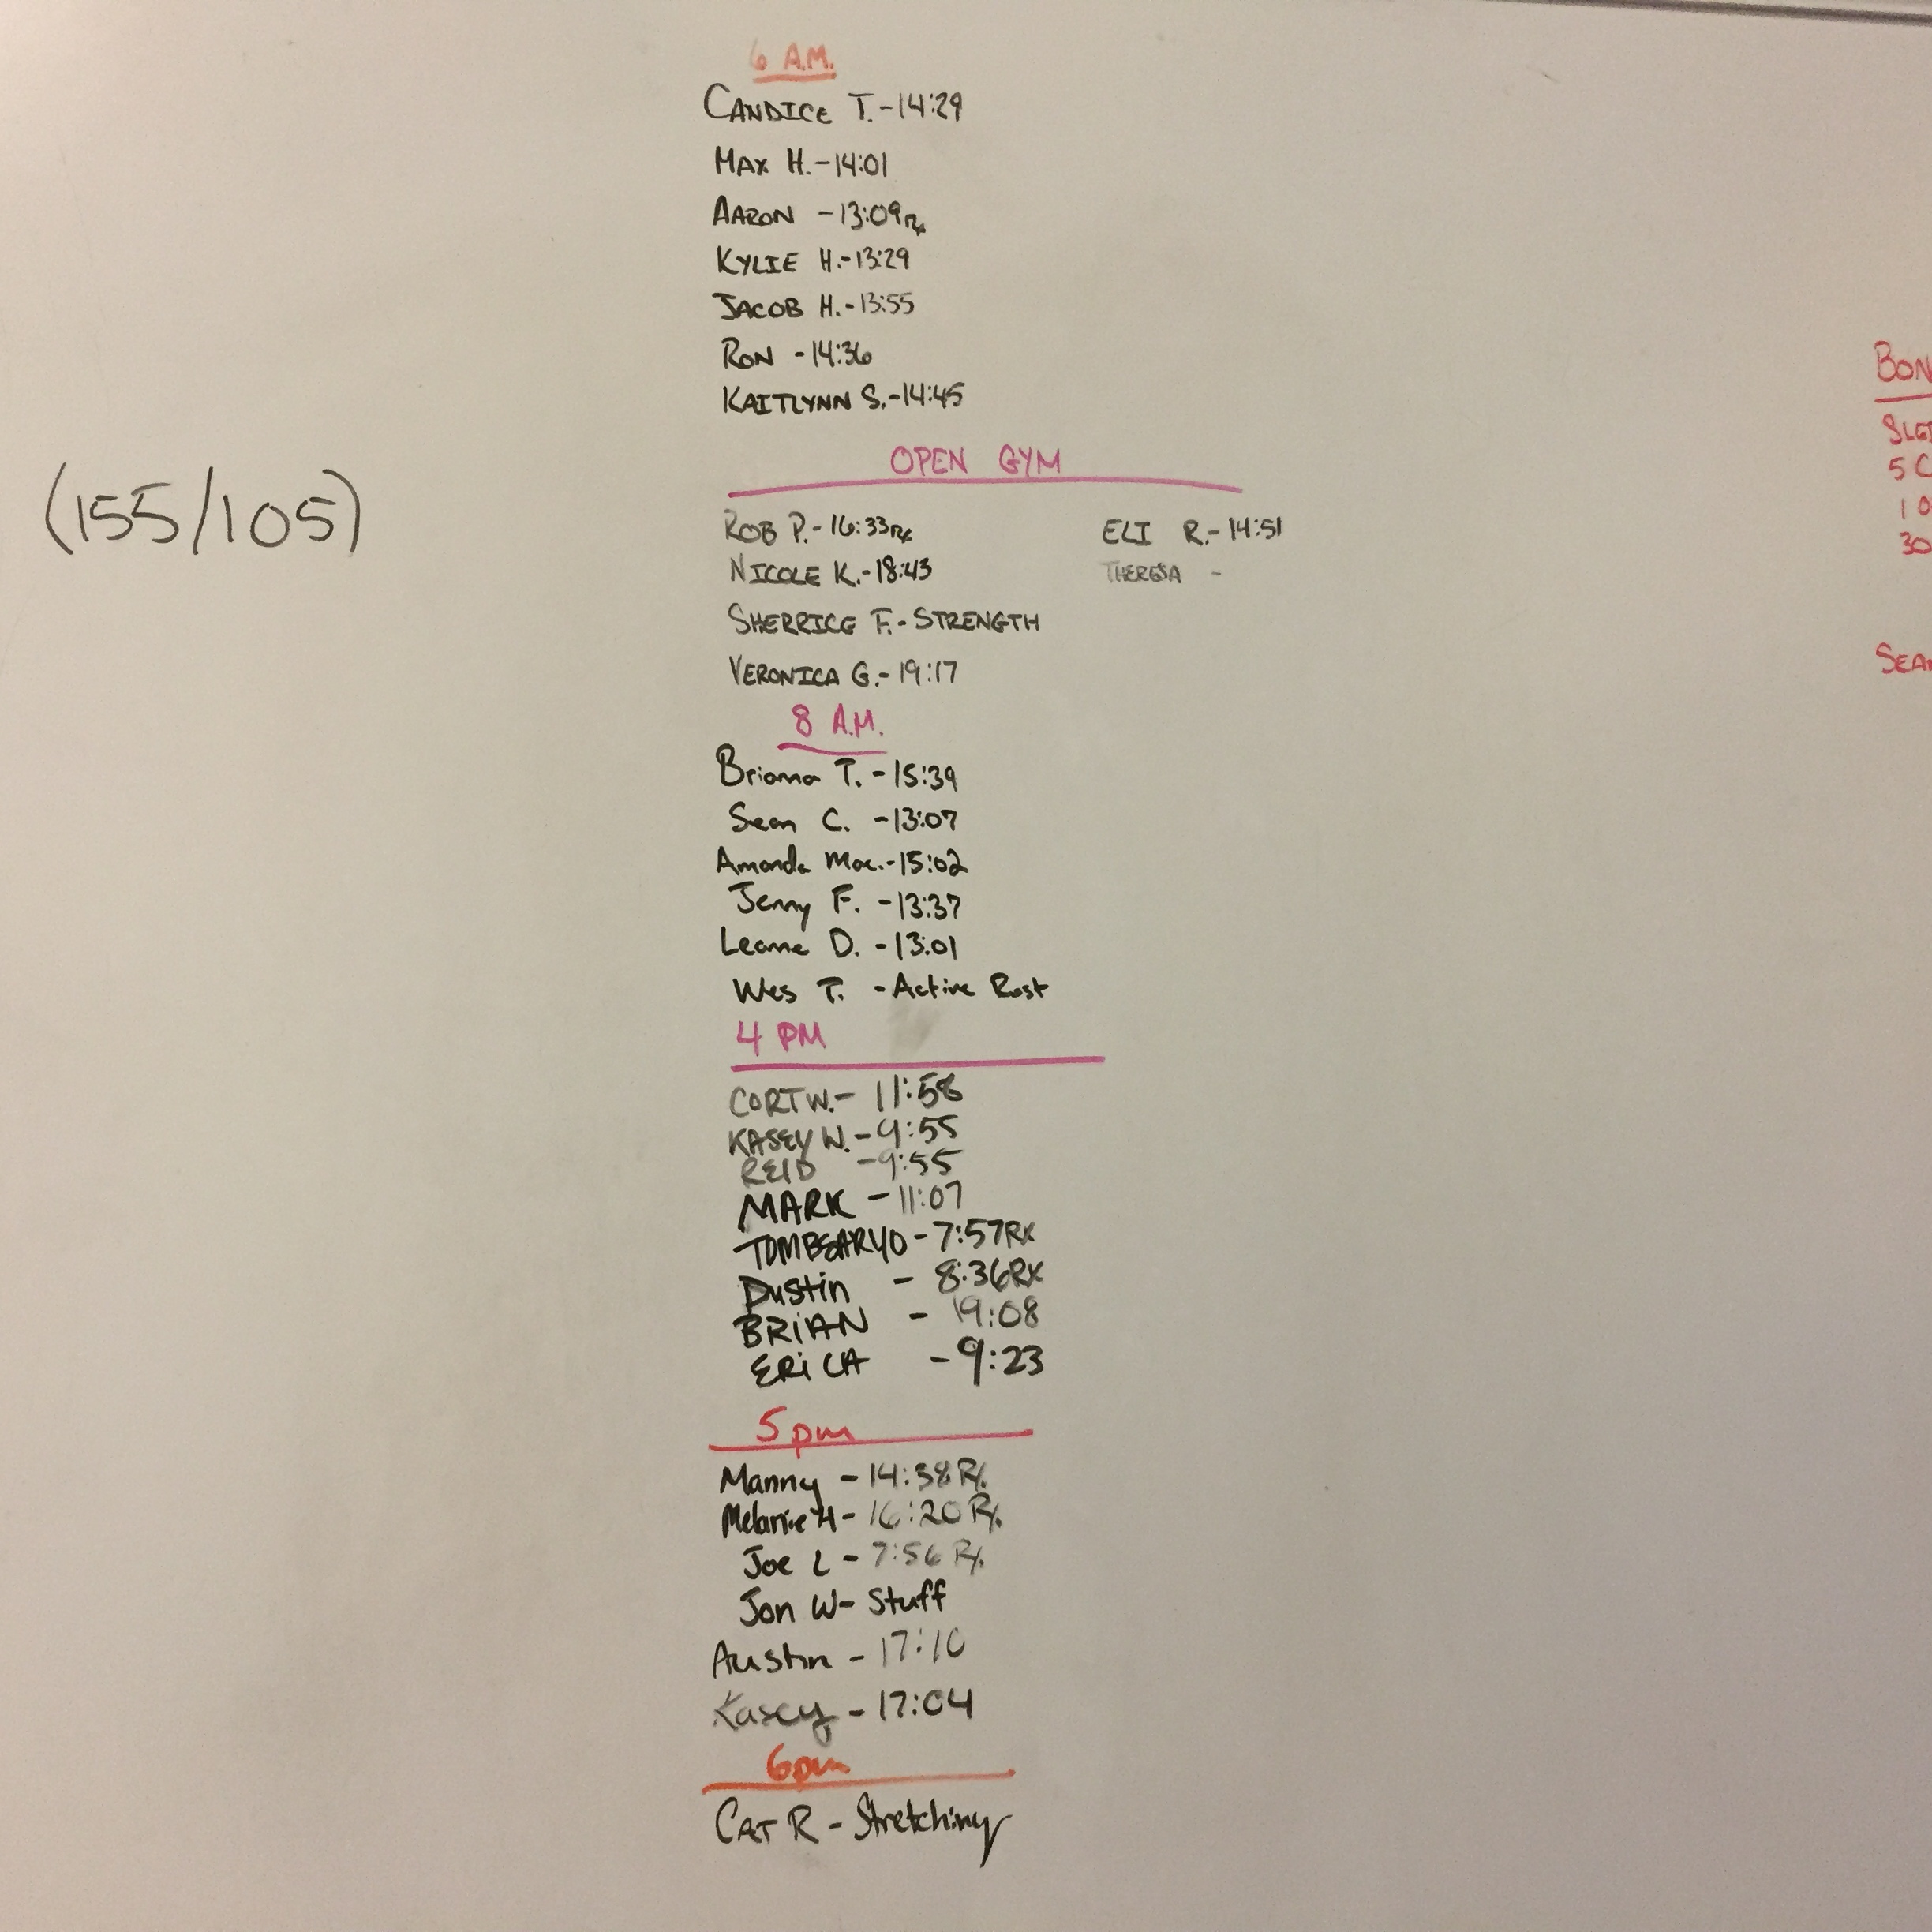 6 A.M.
CANDICE T.-14:29
MAX H.-14:01
AARON -13:09 Rx
KYLIE H.-13:29
JACOB H.-13:55
RON -14:36
KAITLYNN S.-14:45
OPEN GYM
(155/105)
ROB P.-16:33 Rx
NICOLE K.-18:43
SHERRICE F.-STRENGTH
VERONICA G.-19:17
ELI R.-14:51
THERESA -
8 A.M.
Brianna T. -15:39
Sean C. -13:07
Amanda Mac.-15:02
Jenny F. -13:37
Leanne D. -13:01
Wes T. -Active Rest
4 PM
CORT W.- 11:58
KASEY W.-9:55
REID -9:55
MARK -11:07
TOMBEARYO-7:57RX
Dustin - 8:36RX
BRiAN - 19:08
ERiCA -9:23
5pm
Manny - 14:38 Rx
Melanie H- 16:20 Rx
Joe L - 7:56 Rx
Jon W- Stuff
Austin - 17:10
Kasey - 17:04
6pm
CAT R - Stretching
BON
5 C
10
30
SEA